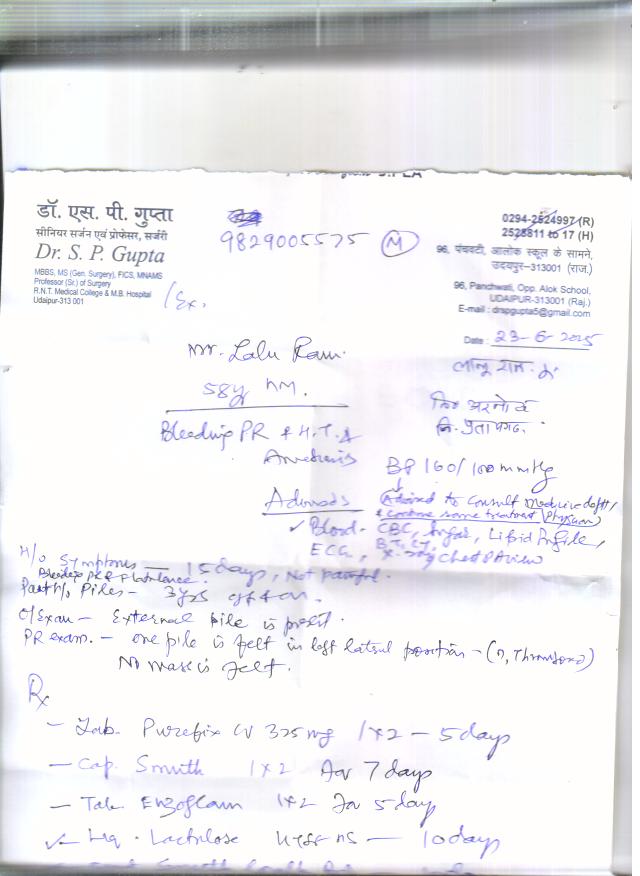 डॉ. एस. पी. गुप्ता
सीनियर सर्जन एवं प्रोफेसर, सर्जरी
Dr. S. P. Gupta
MBBS, MS (Gen. Surgery), FICS, MNAMS
Professor (Sr.) of Surgery
R.N.T. Medical College & M.B. Hospital
Udaipur-313 001
9829005575 (M)
0294-2524997 (R)
2528811 to 17 (H)
96, पंचवटी, आलोक स्कूल के सामने,
उदयपुर-313001 (राज.)
96, Panchwati, Opp. Alok School,
UDAIPUR-313001 (Raj.)
E-mail : drspgupta5@gmail.com
Date : 23-6-2025
/Ex.
Mr. Lalu Ram.
58y
Bleeding PR & H.T. &
BP 160/100 mmHg
Advised to Consult Medicine deptt/
& continue same treatment (Physician)
Blood- CBC, Sugar, Lipid Profile,
ECG, B.T, C.T, X-ray Chest PA view
H/o Symptoms — 15 days, Not painful.
Bleeding per
Past H/o Piles - 3yrs
O/Exam - External pile is
PR exam. - one pile is felt in left lateral position -
No mass is felt.
Rx
- Tab. CV 325 mg 1x2 - 5 days
- Cap. Smuth 1x2 for 7 days
- Tab Enzoflam 1x2 for 5 days
Liq. Lactulose HS — 10 days